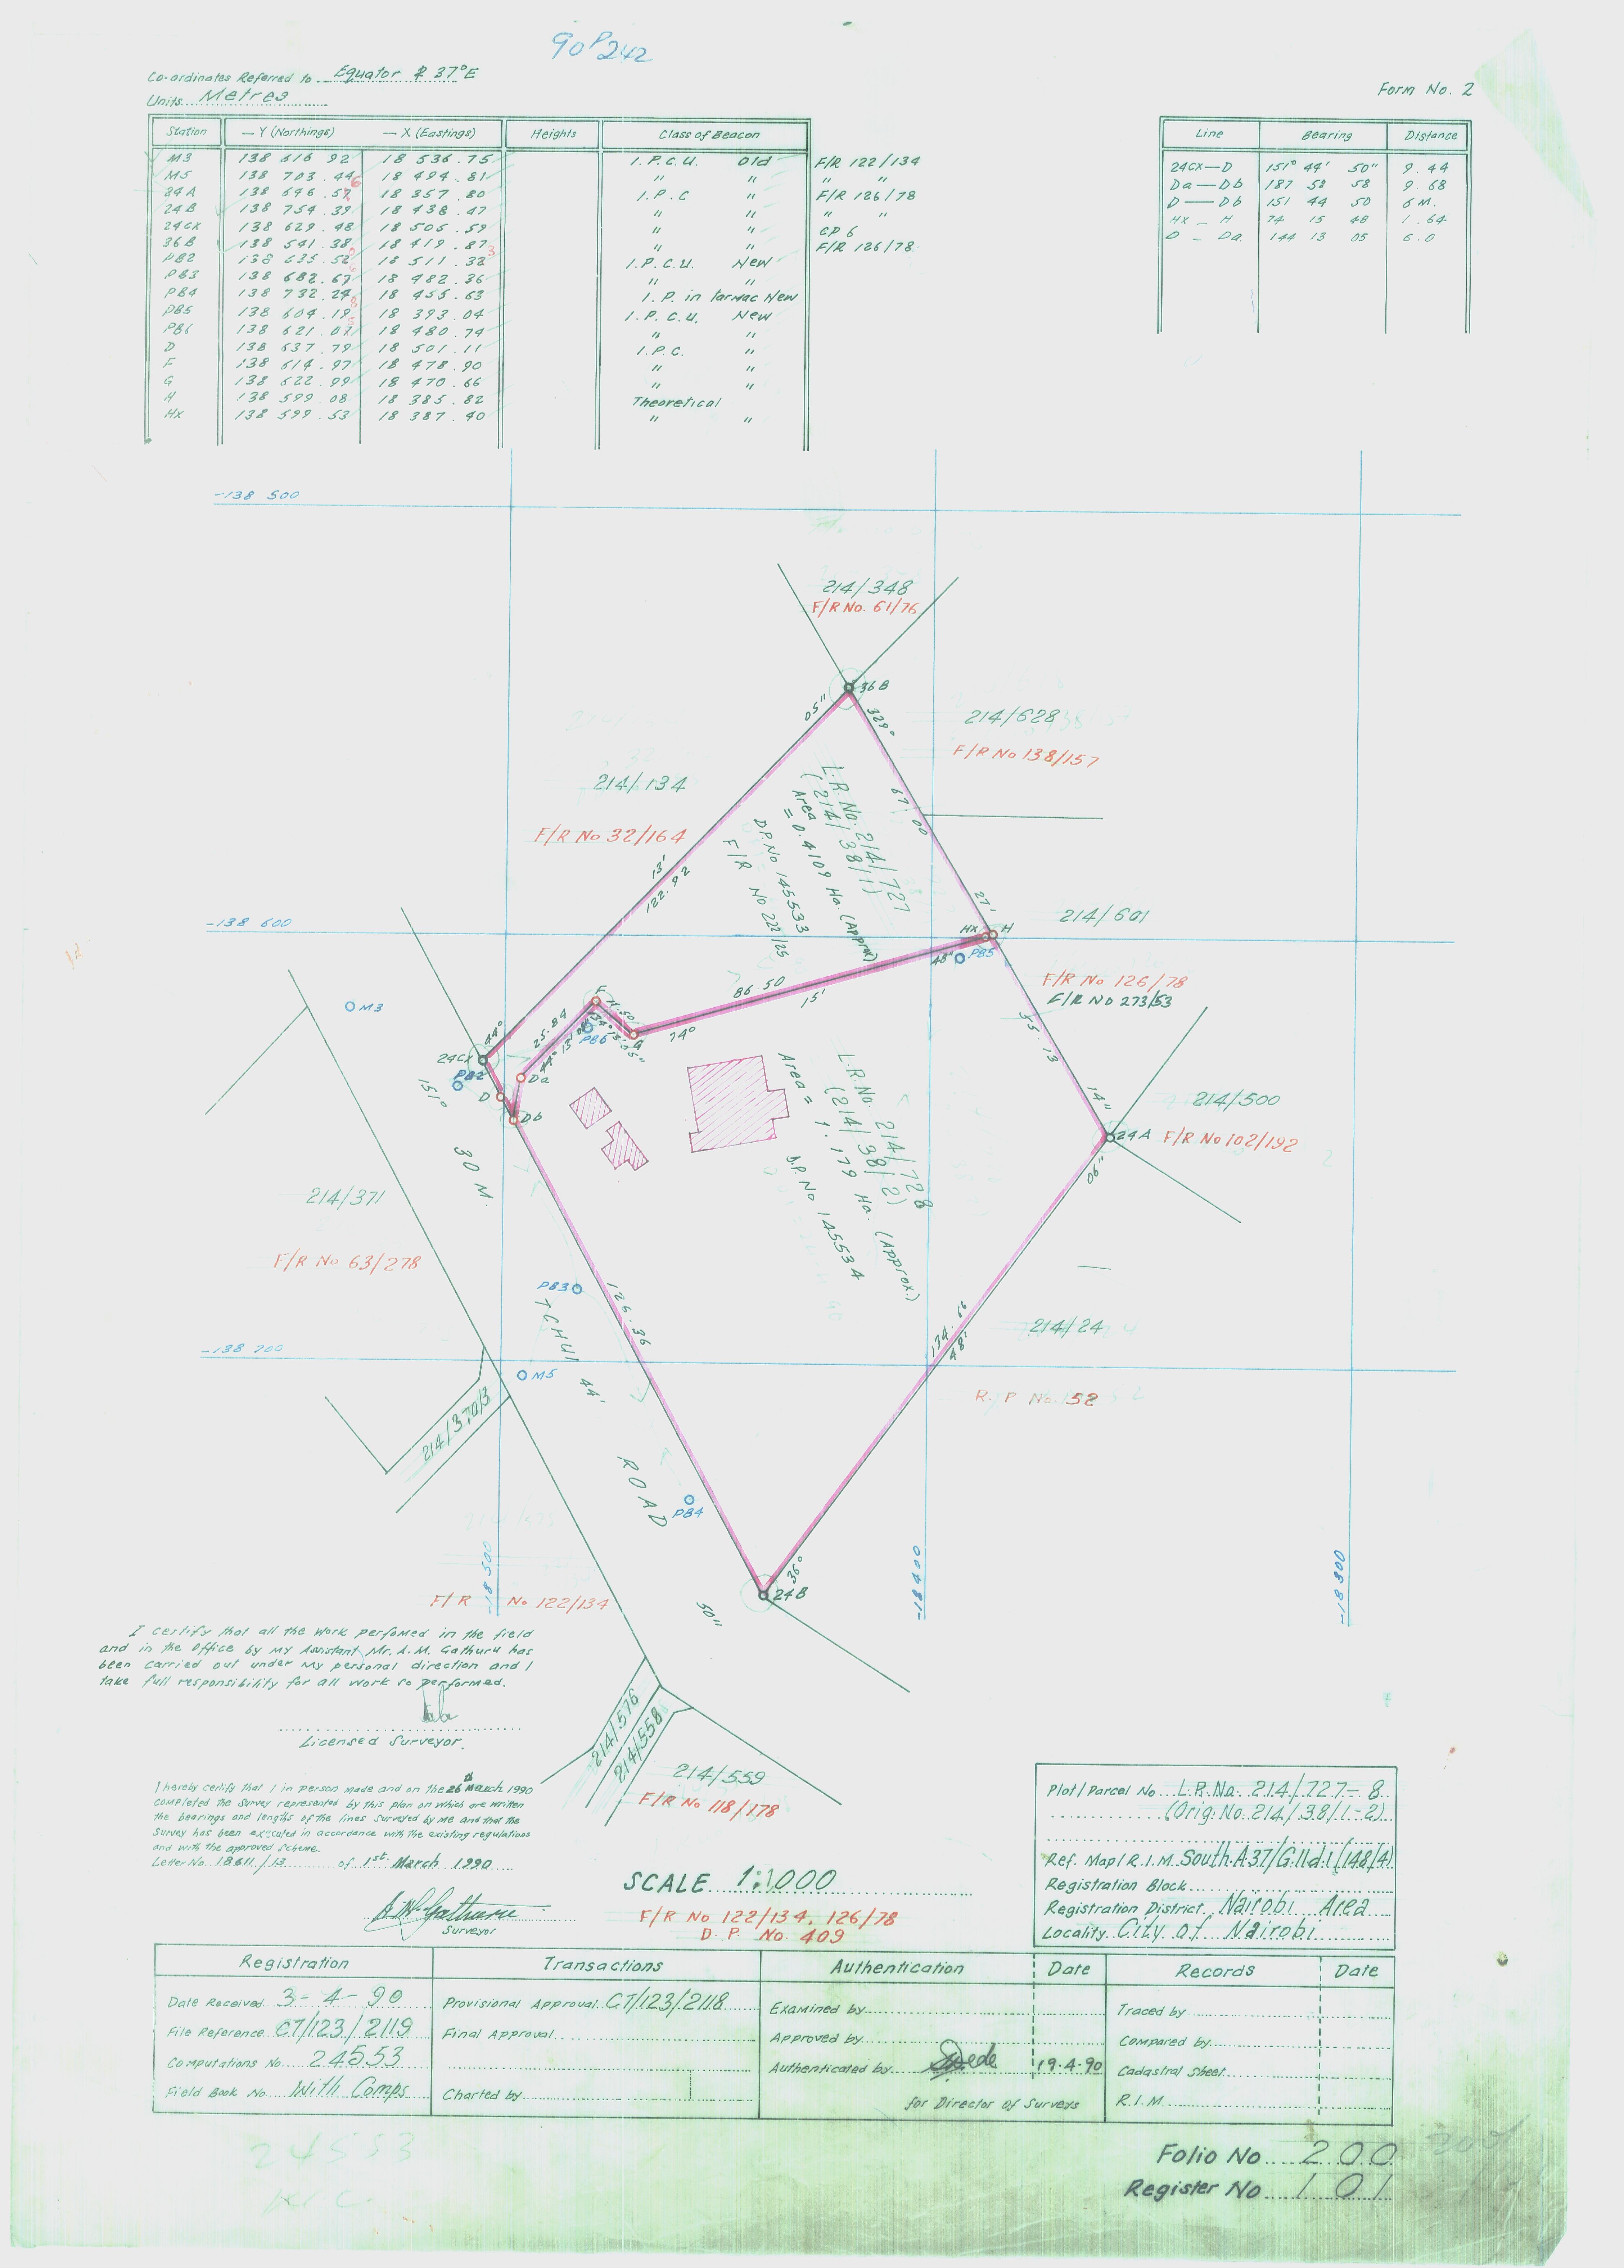 90P242
Co-ordinates Referred to Equator & 37°E
Units Metres
Form No. 2
Station — Y (Northings) — X (Eastings) Heights Class of Beacon
M3 138 616.92 18 536.75 I.P.C.U. Old F/R 122/134
M5 138 703.44 18 494.81 " " " "
24A 138 646.57 18 357.80 I.P.C " F/R 126/78
24B 138 754.39 18 438.47 " " " "
24CX 138 629.48 18 505.59 " " CP 6
36B 138 541.38 18 419.87 " " F/R 126/78
PB2 138 635.52 18 511.32 I.P.C.U. New
PB3 138 682.67 18 482.36 " "
PB4 138 732.24 18 455.63 I.P. in tarmac New
PB5 138 604.19 18 393.04 I.P.C.U. New
PB6 138 621.07 18 480.74 " "
D 138 637.79 18 501.11 I.P.C. "
F 138 614.97 18 478.90 " "
G 138 622.99 18 470.66 " "
H 138 599.08 18 385.82 Theoretical
HX 138 599.53 18 387.40 " "
Line Bearing Distance
24CX—D 151° 44' 50" 9.44
Da—Db 187 58 58 9.68
D—Db 151 44 50 6 M.
HX—H 74 15 48 1.64
D—Da 144 13 05 6.0
-138 500
214/348
F/R No. 61/76
36B
05"
329°
214/628
F/R No 138/157
214/134
F/R No 32/164
67.00
L.R. No. 214/727
(214/38/1)
Area = 0.4109 Ha. (Approx)
D.P. No 145533
F/R No 222/25
13'
122.92
27'
-138 600
214/601
HX H
48" PB5
F/R No 126/78
F/R No 273/53
M3
86.50
15'
74°
F
11.50
G
25.84
PB6
44° 13' 05"
134° 13' 05"
44°
24CX
PB2
Da
D
Db
151°
30 M.
55.13
14"
214/500
24A F/R No 102/192
06"
L.R. No. 214/728
(214/38/2)
Area = 1.179 Ha. (Approx.)
D.P. No 145534
214/371
F/R No 63/278
PB3
126.36
TCHUI
44'
ROAD
134.66
48'
214/24
-138 700
M5
R. P No. 52
214/370/3
PB4
36°
24B
50"
-18 500
-18 400
-18 300
F/R No 122/134
I certify that all the work perfomed in the field
and in the office by my Assistant Mr. A. M. Gathuru has
been carried out under my personal direction and I
take full responsibility for all work so performed.
Licensed Surveyor.
214/576
214/558
214/559
F/R No 118/178
I hereby certify that I in person made and on the 26th March 1990
completed the Survey represented by this plan on which are written
the bearings and lengths of the lines Surveyed by me and that the
Survey has been executed in accordance with the existing regulations
and with the approved Scheme.
Letter No. 18611/13 of 1st March 1990
Surveyor
SCALE 1:1000
F/R No 122/134, 126/78
D. P. No. 409
Plot/Parcel No. L.R. No. 214/727-8
(Orig. No. 214/38/1-2)
Ref. Map/R.I.M. South A.37/G.11.d.1 (148/4)
Registration Block
Registration District Nairobi Area
Locality City of Nairobi
Registration Transactions Authentication Date Records Date
Date Received 3-4-90 Provisional Approval CT/123/2118 Examined by Traced by
File Reference CT/123/2119 Final Approval Approved by Compared by
Computations No. 24553 Authenticated by 19.4.90 Cadastral Sheet
Field Book No. With Comps Charted by for Director of Surveys R.I.M.
24553
Folio No 200
Register No 101